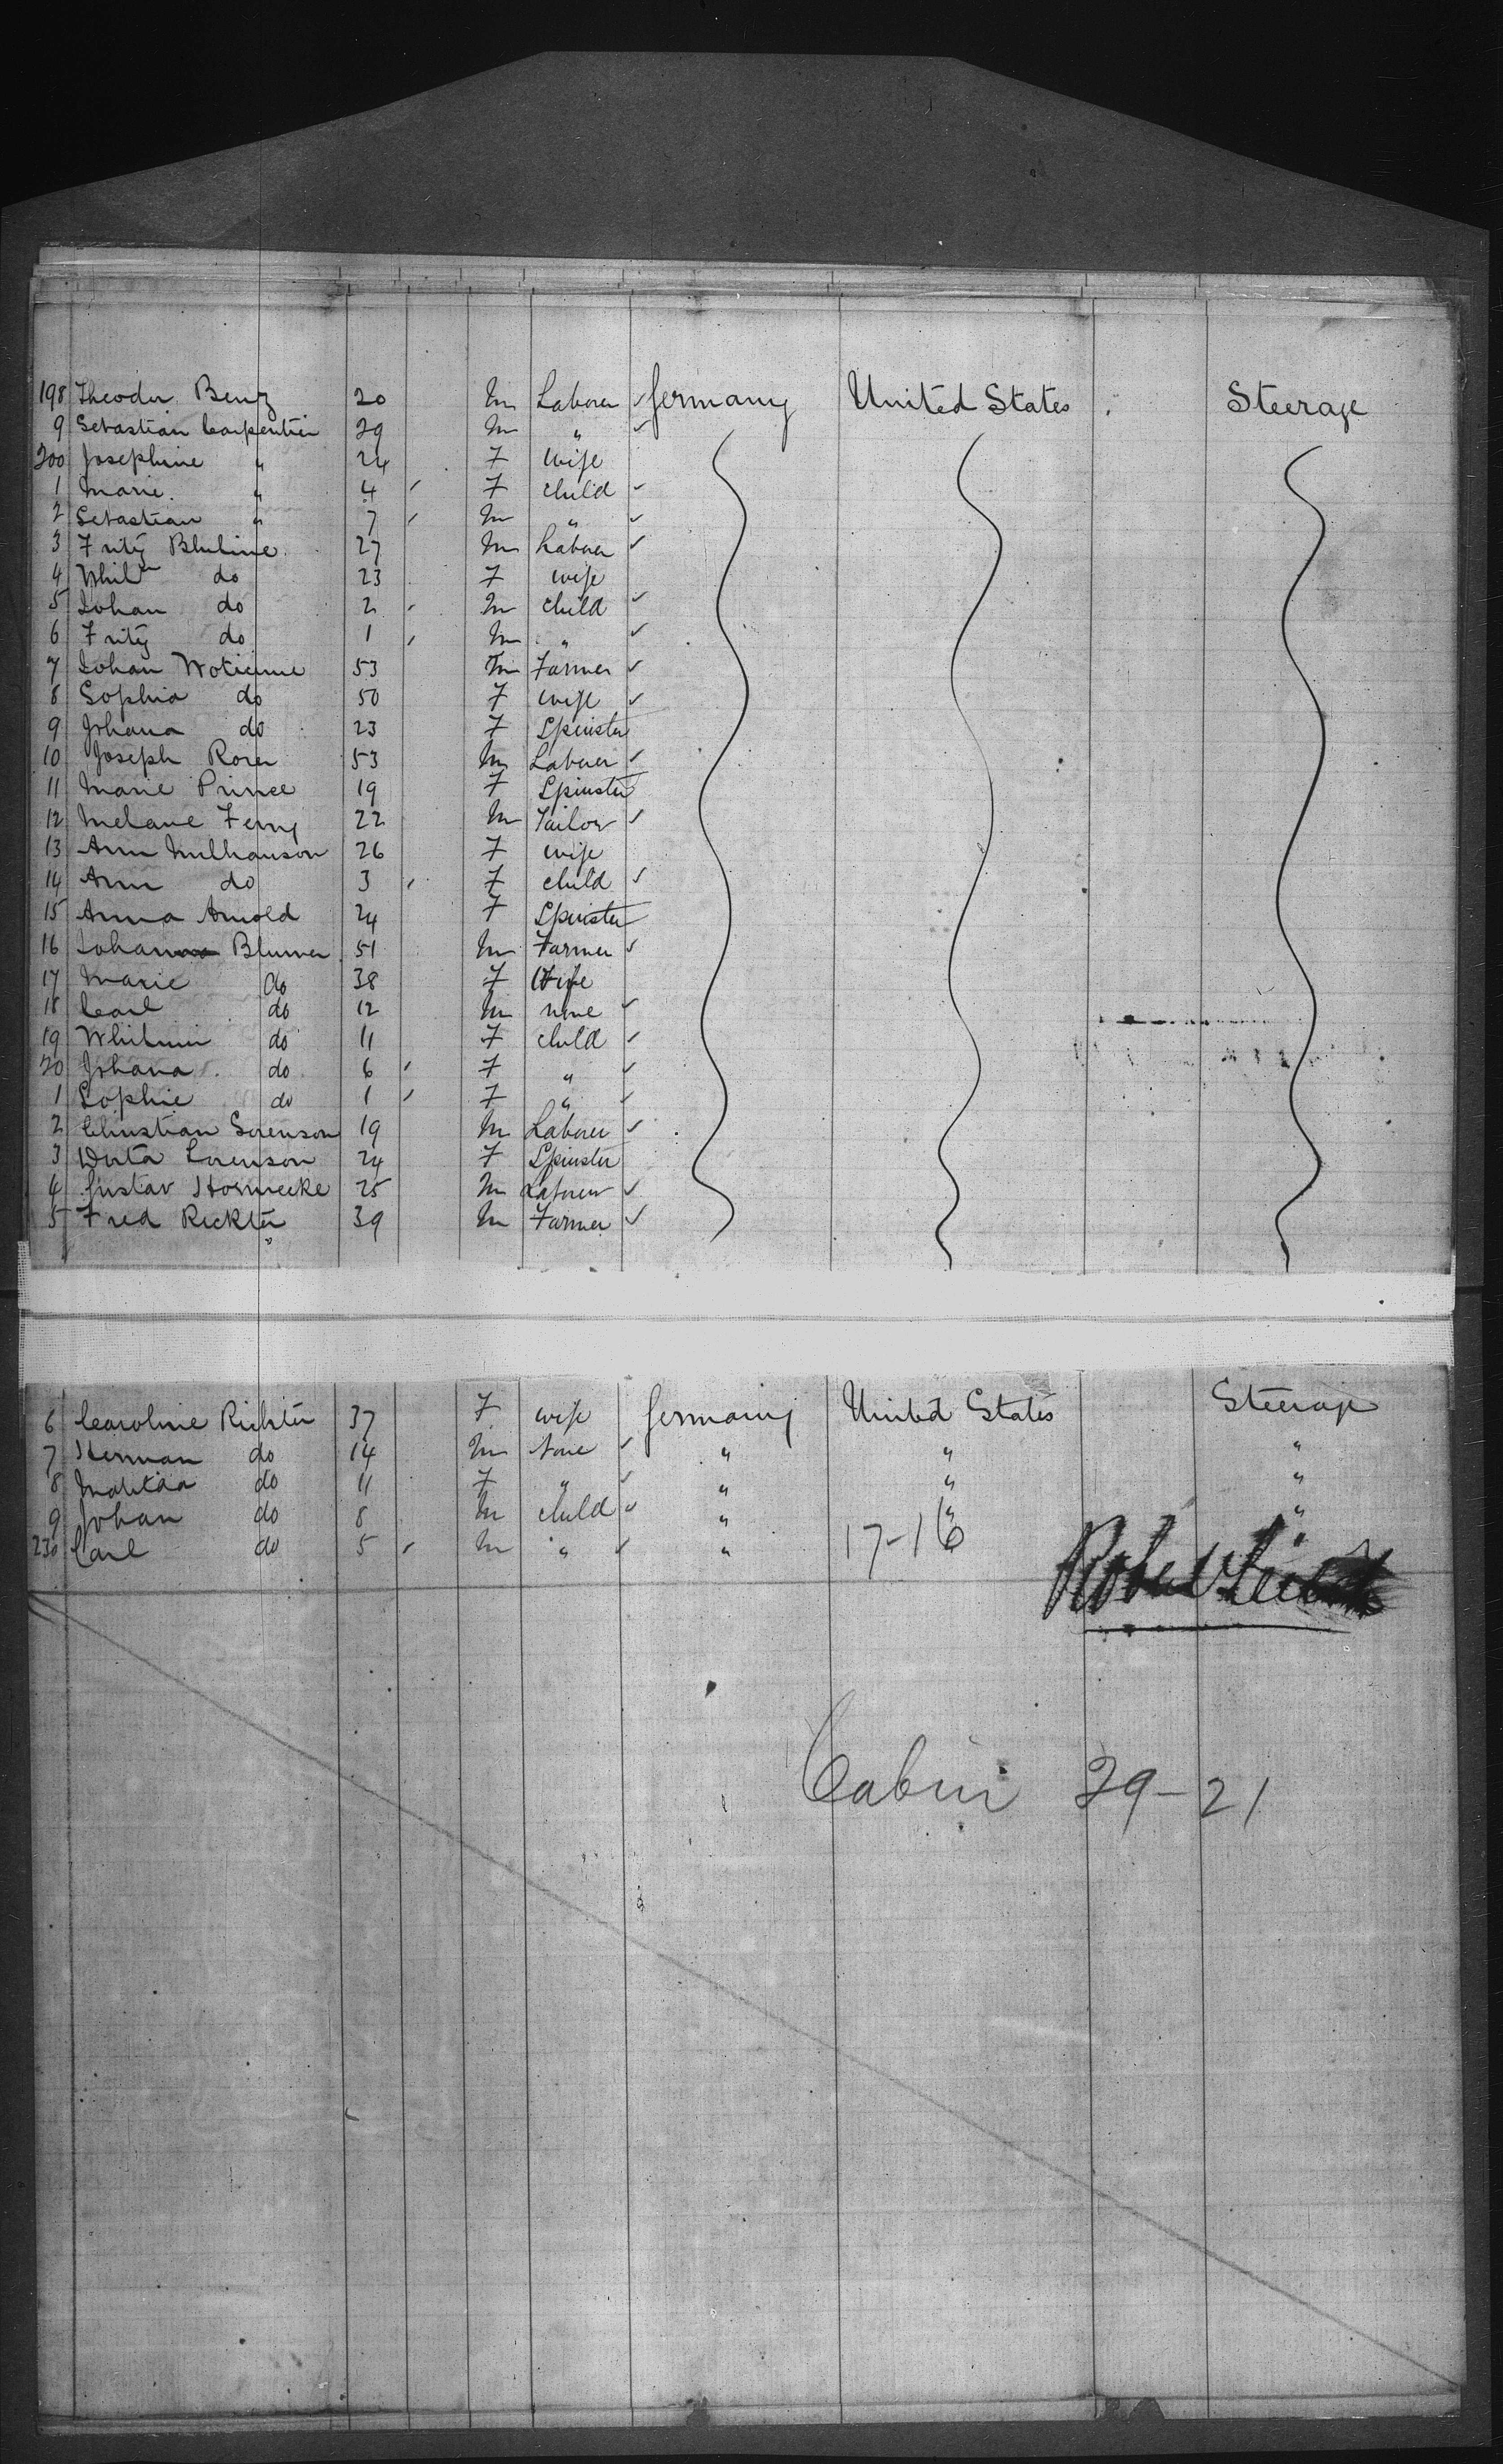 198 Theodor Benz 20 M Laborer ✓ Germany United States Steerage
9 Sebastian Carpentier 29 M " ✓
200 Josephine " 24 F wife
1 Marie " 4 F child ✓
2 Sebastian " 7 M " ✓
3 Fritz Bluhine 27 M Laborer ✓
4 Whil do 23 F wife
5 Johan do 2 M child ✓
6 Fritz do 1 M " ✓
7 Johan 53 M Farmer ✓
8 Sophia do 50 F wife ✓
9 Johana do 23 F Spinster
10 Joseph Rorer 53 M Laborer ✓
11 Marie Prince 19 F Spinster
12 Melane Ferry 22 M Tailor ✓
13 Ann Mulhauson 26 F wife
14 Ann do 3 F child ✓
15 Anna Arnold 24 F Spinster
16 Johan Blumer 51 M Farmer ✓
17 Marie do 38 F Wife
18 Carl do 12 M none ✓
19 Whilmin do 11 F child ✓
20 Johana do 6 F " ✓
1 Sophie do 1 F " ✓
2 Christian Sorenson 19 M Laborer ✓
3 Dorta Sorenson 24 F Spinster
4 Gustav Hornecke 25 M Laborer ✓
5 Fred Rickter 39 M Farmer ✓
6 Caroline Richter 37 F wife Germany United States Steerage
7 Herman do 14 M None ✓ " " "
8 do 11 F " ✓ " " "
9 Johan do 8 M child ✓ " " "
230 Carl do 5 M " ✓ "
17-16
Cabin 29-21